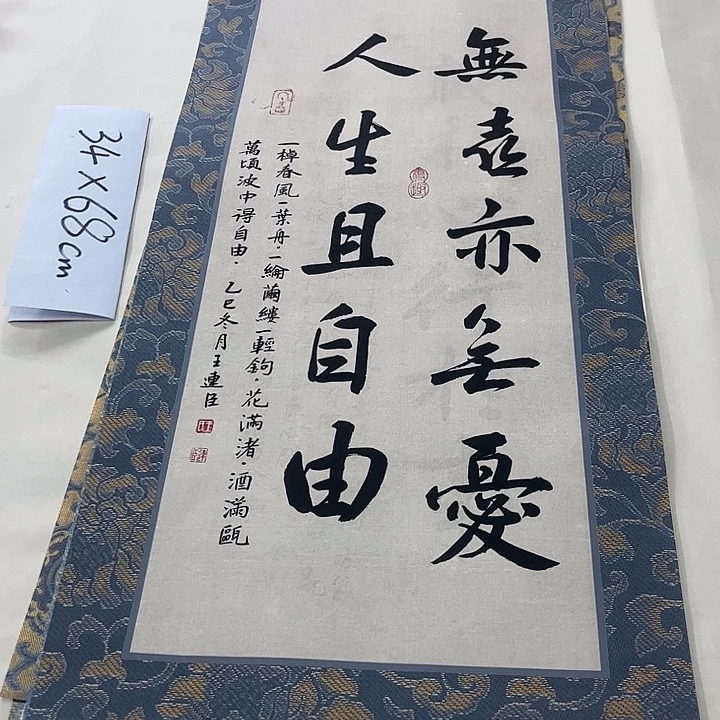 無喜亦無憂
人生且自由
一棹春風一葉舟.一綸繭縷一輕鉤.花滿渚.酒滿甌
萬頃波中得自由.乙巳冬月王連臣
34×68cm